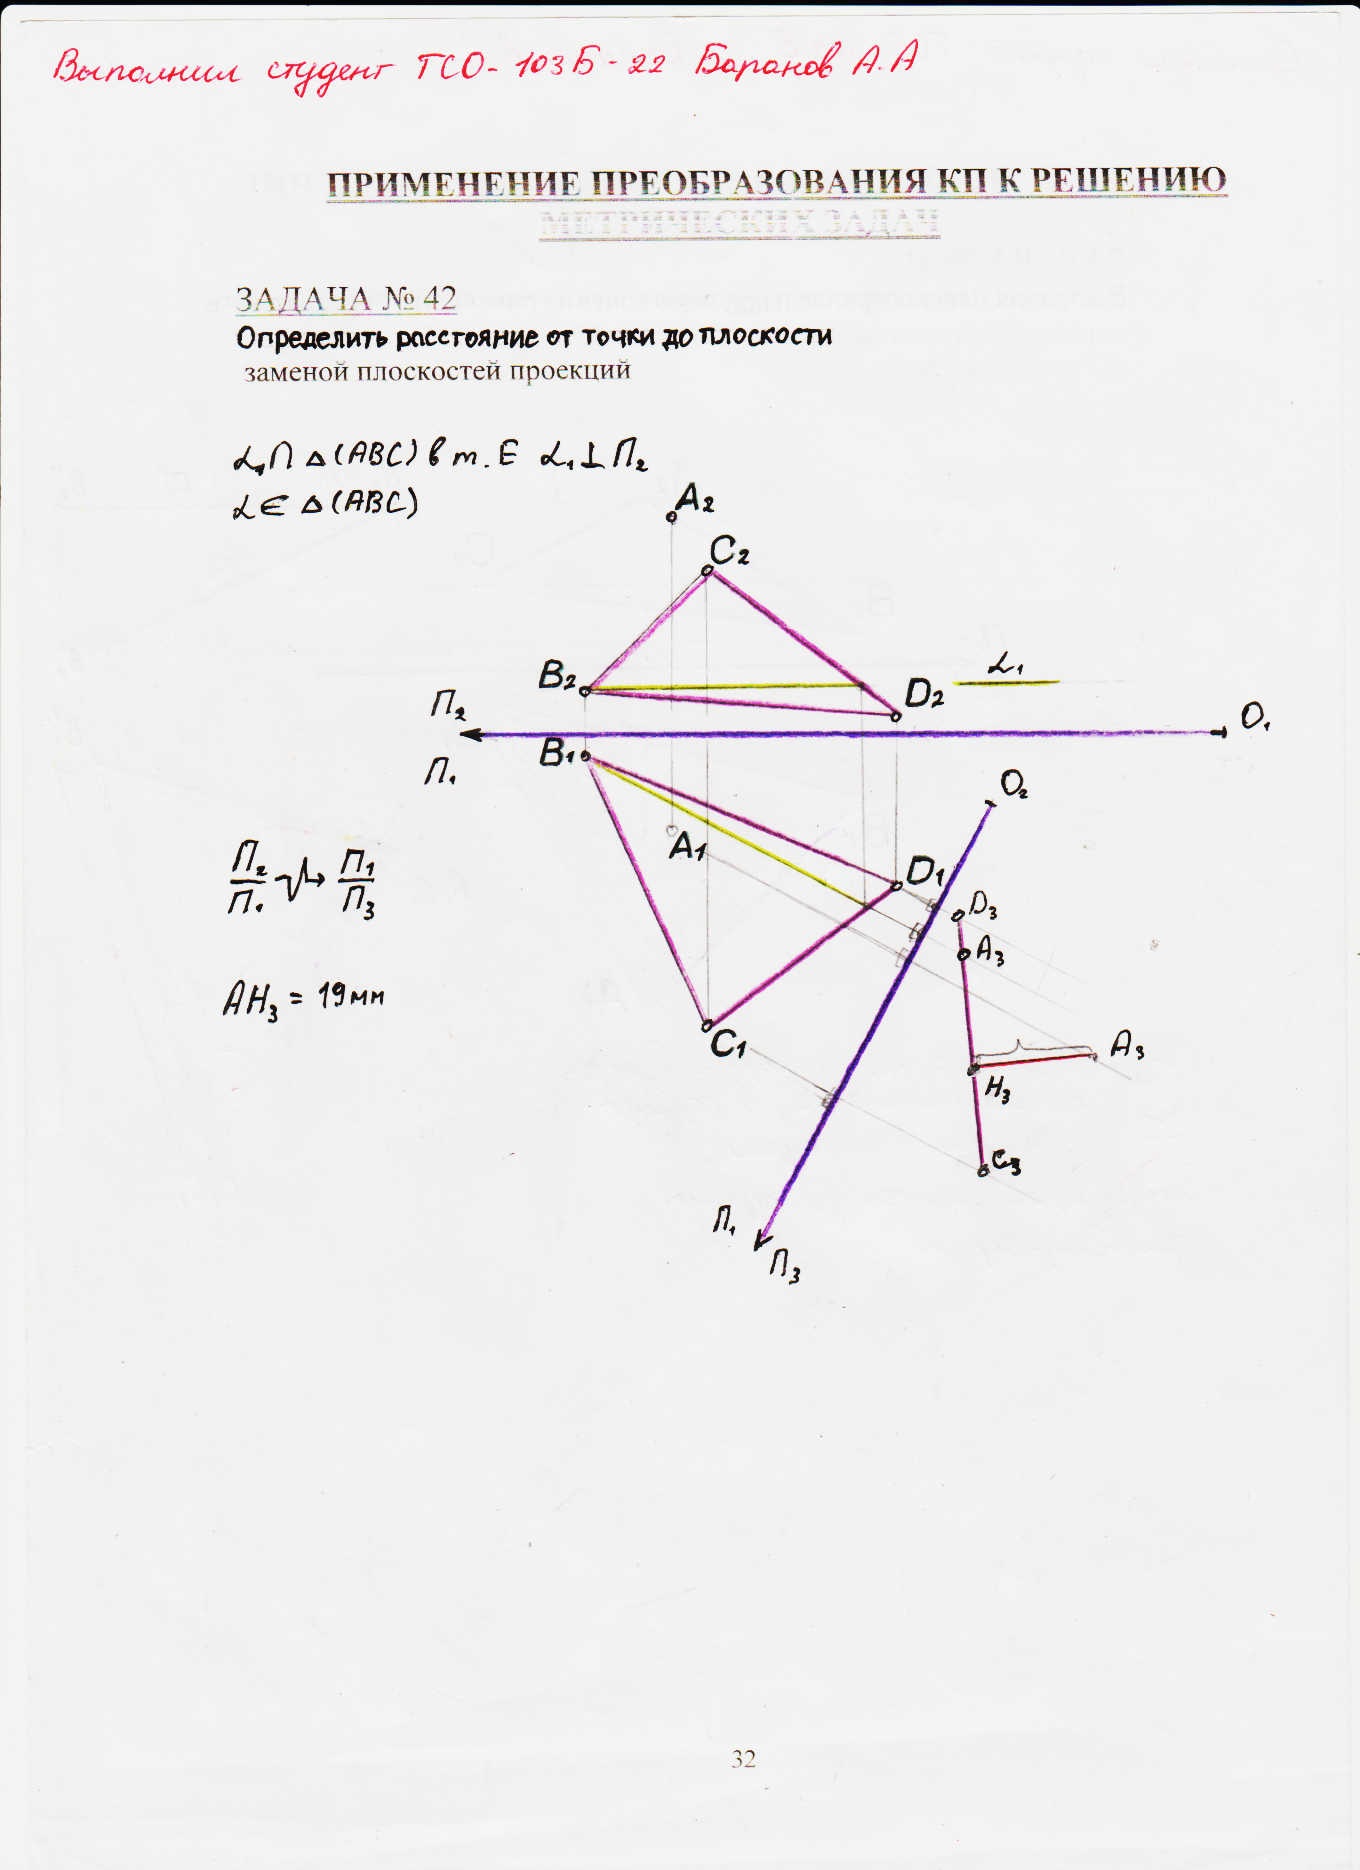 Выполнил студент ТСО-103Б-22 Баранов А.А
ПРИМЕНЕНИЕ ПРЕОБРАЗОВАНИЯ КП К РЕШЕНИЮ
МЕТРИЧЕСКИХ ЗАДАЧ
ЗАДАЧА № 42
Определить расстояние от точки до плоскости
заменой плоскостей проекций
α₁∩ △(ABC) в т. E α₁⊥П₂
α∈ △(ABC)
A₂
C₂
B₂
D₂
α₁
П₂
O₁
П₁
B₁
O₂
A₁
D₁
П₂/П₁ → П₁/П₃
D₃
A₃
AH₃ = 19мм
C₁
A₃
H₃
C₃
П₁
П₃
32